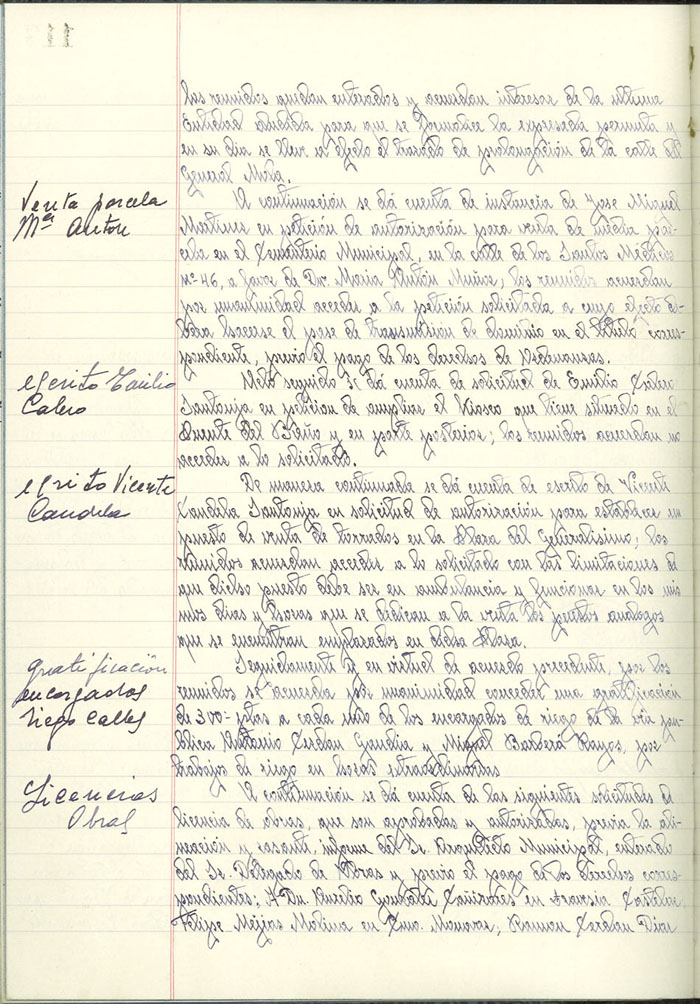 los reunidos quedan enterados y acuerdan interesar de la última
Entidad aludida para que se formalice la expresada permuta y
en su dia se lleve a efecto el trazado de prolongación de la calle del
General Mola.
Venta parcela
Mª Anton
A continuación se dá cuenta de instancia de Jose Miguel
Martinez en petición de autorización para venta de media par-
cela en el Cementerio Municipal, en la calle de los Santos Medicos
nº 46, a favor de Dª Maria Antón Muñoz; los reunidos acuerdan
por unanimidad acceder a la petición solicitada a cuyo efecto de-
berá hacerse el pase de transmisión de dominio en el título corres-
pondiente, previo el pago de los derechos de Ordenanzas.
escrito Emilio
Calero
Acto seguido se dá cuenta de solicitud de Emilio Calero
Santonja en petición de ampliar el Kiosco que tiene situado en el
Puente del Baño y en parte posterior; los reunidos acuerdan no
acceder a lo solicitado.
escrito Vicente
Candela
De manera continuada se dá cuenta de escrito de Vicente
Candela Santonja en solicitud de autorización para establecer un
puesto de venta de torrados en la Plaza del Generalísimo; los
reunidos acuerdan acceder a lo solicitado con las limitaciones de
que dicho puesto debe ser en ambulancia y funcionar en los mis
mos dias y horas que se dedican a la venta los puestos analogos
que se encuentran emplazados en dicha Plaza.
gratificación
encargados
riego calles
Seguidamente y en virtud de acuerdo precedente, por los
reunidos se acuerda por unanimidad conceder una gratificación
de 300- ptas a cada uno de los encargados de riego de la vía pu-
blica Antonio Cerdan Gandia y Miguel Barberá, por
trabajos de riego en horas extraordinarias
Licencias
Obras
A continuación se dá cuenta de las siguientes solicitudes de
licencia de obras, que son aprobadas y autorizadas, previa la ali-
neación y rasante, informe del Sr. Arquitecto Municipal, enterado
del Sr. Delegado de Obras y previo el pago de los derechos corres-
pondientes: A Dn. Aurelio Gonzalez Cañizares en travesia Castelar,
Felipe Mejias Molina en Cmo. Monovar; Ramon Cerdan Diaz